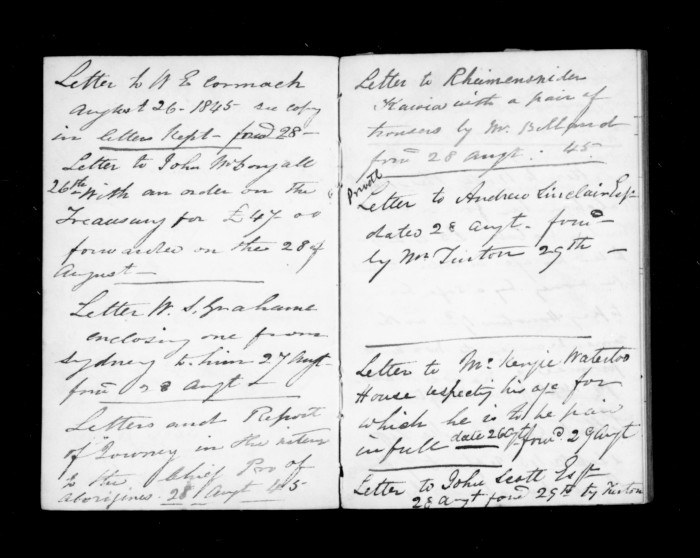 Letter to W E Cormack
August 26 - 1845 see copy
in letters Kept - forwd 28 -
Letter to John McDougall
26th With an order on the
Treasury for £47-00
forwarded on the 28 of
August
Letter W. S. Grahame
enclosing one from
Sydney to him 27 Augt
forwd 28 Augt
Letters and Report
of Journey in the
to the Chief Pro of
Aborigines. 28 Augt 45
Letter to Rheimensnider
Kawia with a pair of
trousers by Mr.
forwd 28 augt. 45.
Privat
Letter to Andrew Sinclair Esqr
dated 28 augt. forwd
by Mr Tinton 29th -
Letter to Mc Kenzie Waterloo
House respecting his age for
which he is to be paid
in full date 26 forwd. 29 Augt
Letter to John Scott Esqr
28 augt forwd 29th by Tinton